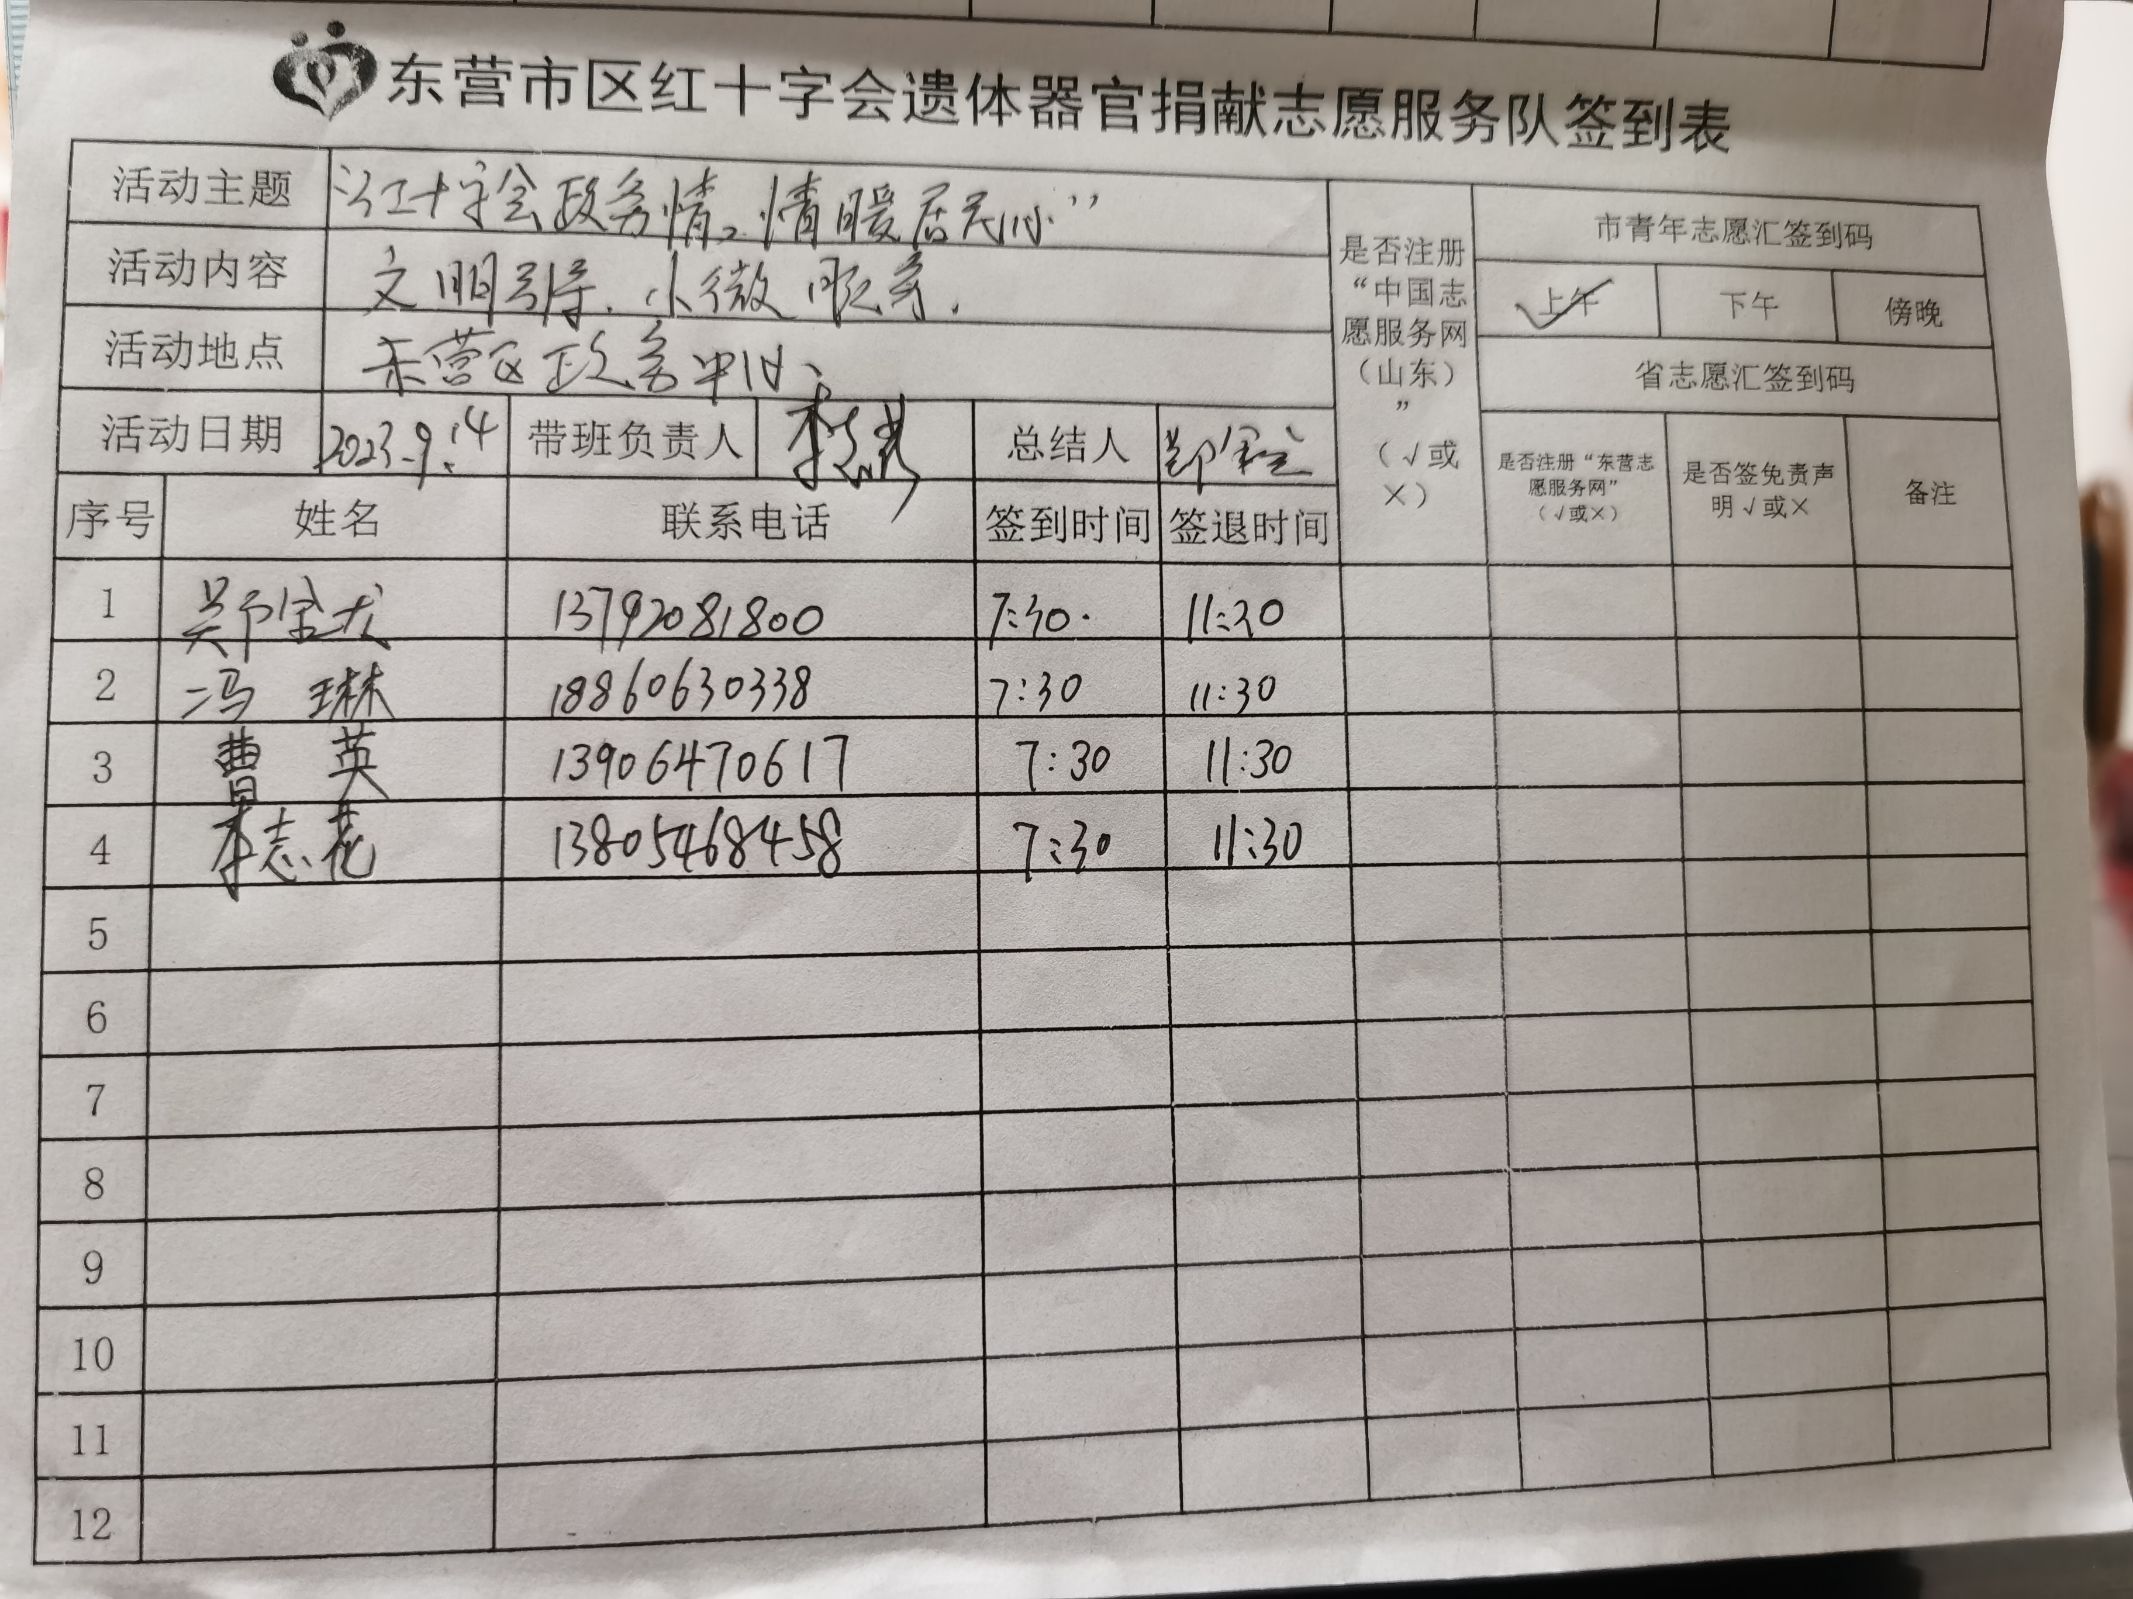 东营市区红十字会遗体器官捐献志愿服务队签到表
活动主题 “红十字会政务情，情暖居民心”
活动内容 文明引导.小微服务.
活动地点 东营区政务中心
活动日期 2023.9.14 带班负责人 李志花 总结人 郑宝
是否注册“中国志愿服务网（山东）”（√或×）
市青年志愿汇签到码
上午 下午 傍晚
省志愿汇签到码
是否注册“东营志愿服务网”（√或×） 是否签免责声明√或× 备注
序号 姓名 联系电话 签到时间 签退时间
1 郑宝 13792081800 7:30. 11:30
2 冯琳 18860630338 7:30 11:30
3 曹英 13906470617 7:30 11:30
4 李志花 13805468458 7:30 11:30
5
6
7
8
9
10
11
12